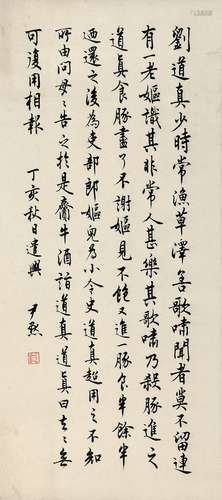 劉道真少時常漁草澤善歌嘯聞者莫不留連
有一老嫗識其非常人甚樂其歌嘯乃殺豚進之
道真食豚盡了不謝嫗見不飽又進一豚食半餘半
迺還之後為吏部郎嫗兒為小令史道真超用之不知
所由問母母告之於是齎牛酒詣道真道真曰去去無
可復用相報
丁亥秋日遣興 尹默